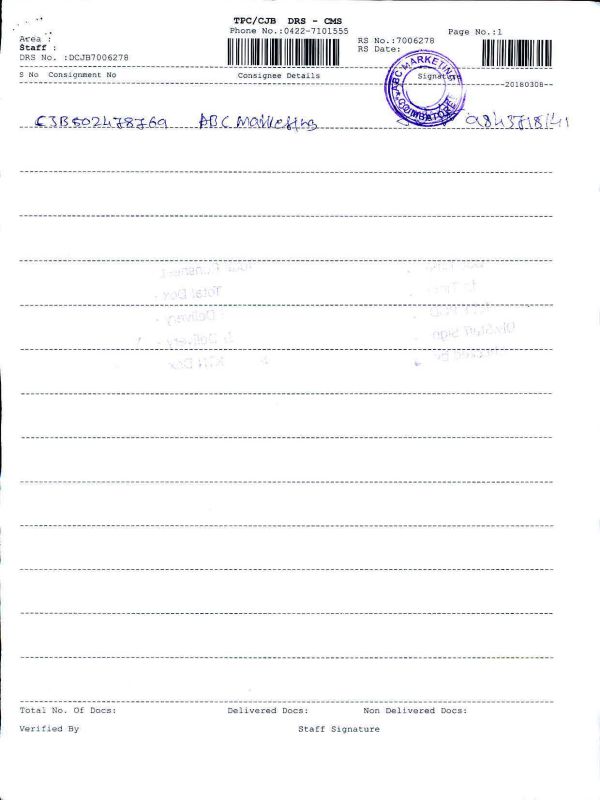 TPC/CJB DRS - CMS
Phone No.:0422-7101555 Page No.:1
Area :
Staff :
RS No.:7006278
RS Date:
DRS No. :DCJB7006278
S No Consignment No Consignee Details Signature
20180308
ABC MARKETING
COIMBATORE
CJB602478769 ABC Marketing
Total Dox -
Delivery -
Div.Staff Sign
Total No. Of Docs: Delivered Docs: Non Delivered Docs:
Verified By Staff Signature